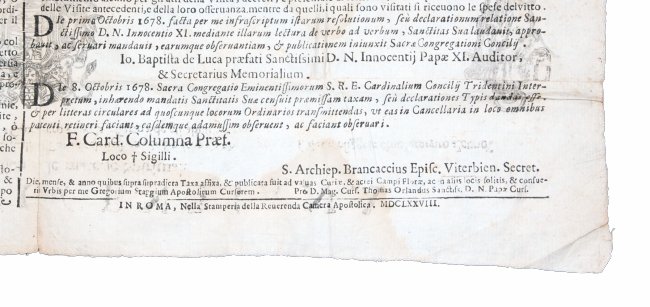 delle Visite antecedenti, e della loro osseruanza, mentre da quelli, i quali sono visitati si riceuono le spese del vitto.
Die prima Octobris 1678. facta per me infrascriptum istarum resolutionum, seù declarationum relatione Sanctissimo
D. N. Innocentio XI. mediante illarum lectura de verbo ad verbum, Sanctitas Sua laudauit, approbauit,
ac seruari mandauit, earumque obseruantiam, & publicationem iniunxit Sacræ Congregationi Concilij.
Io. Baptista de Luca præfati Sanctissimi D. N. Innocentij Papæ XI. Auditor,
& Secretarius Memorialium.
Die 8. Octobris 1678. Sacra Congregatio Eminentissimorum S. R. E. Cardinalium Concilij Tridentini Interpretum,
inhærendo mandatis Sanctitatis Suæ censuit præmissam taxam, seù declarationes Typis
& per litteras circulares ad quoscunque locorum Ordinarios transmittendas, vt eas in Cancellaria in loco omnibus
patenti retineri faciant, easdemque adamussim obseruent, ac faciant obseruari.
F. Card. Columna Præf.
Loco † Sigilli.
S. Archiep. Brancaccius Episc. Viterbien. Secret.
Die, mense, & anno quibus supra supradicta Taxa affixa, & publicata fuit ad valuas Curiæ, & aciei Campi Floræ, ac in alijs locis solitis, & consuetis
Vrbis per me Gregorium Stagium Apostolicum Cursorem. Pro D. Mag. Curs. Thomas Orlandus Sanctiss. D. N. Papæ Curs.
IN ROMA, Nella Stamperia della Reuerenda Camera Apostolica. MDCLXXVIII.